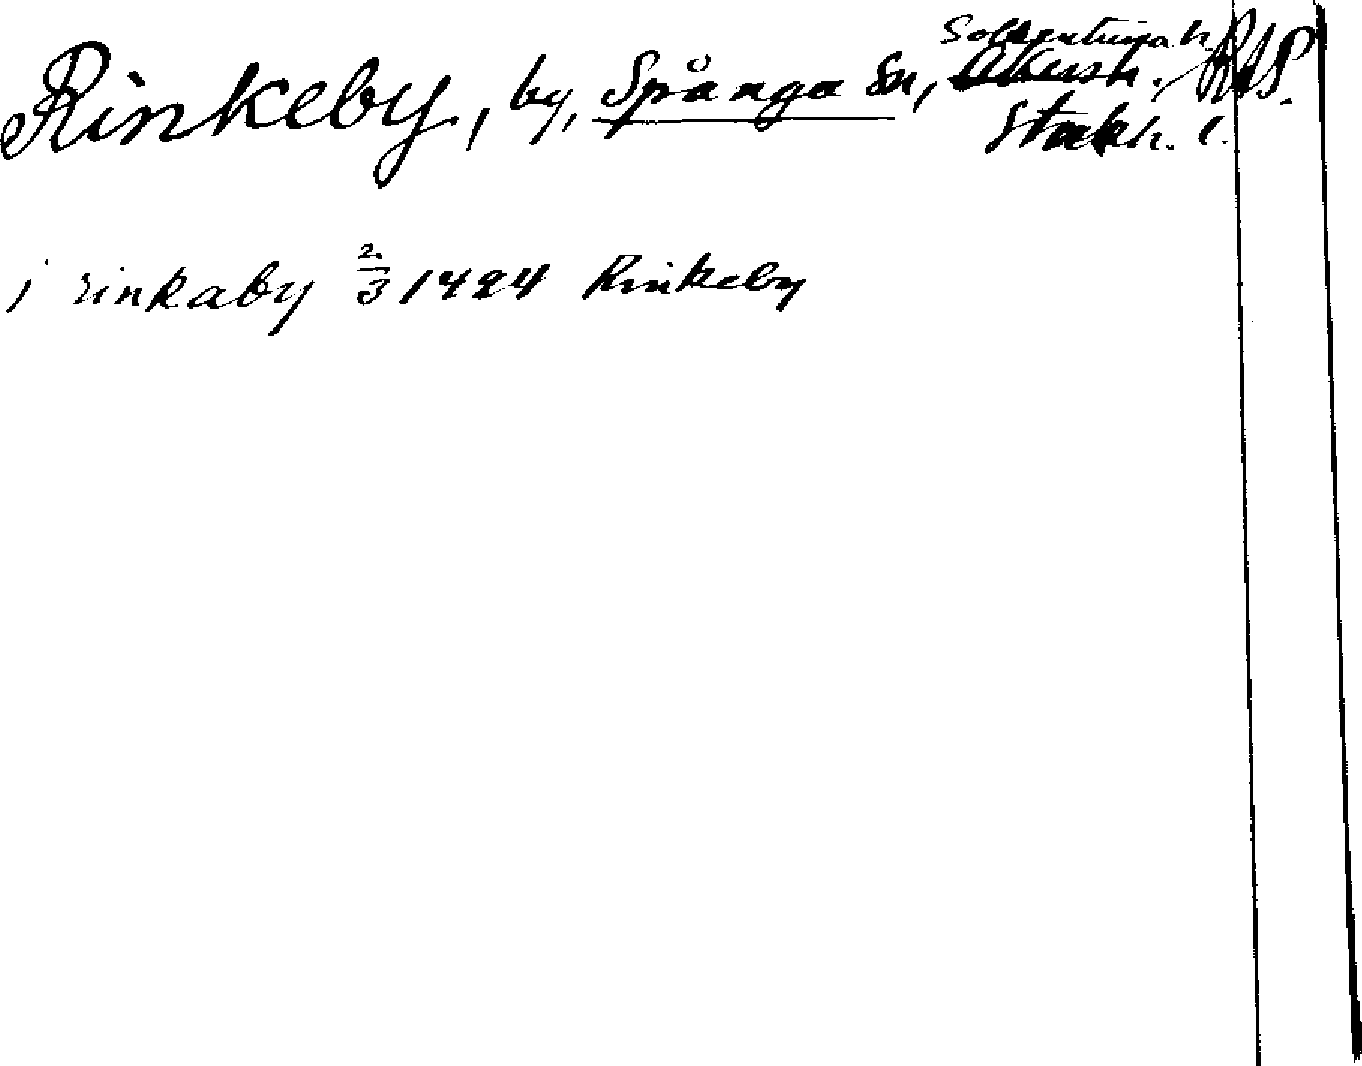 Rinkeby, by, Spånga sn, Sollentuna h.
Stockh. l.
i rinkaby 2/3 1424 Rinkeby